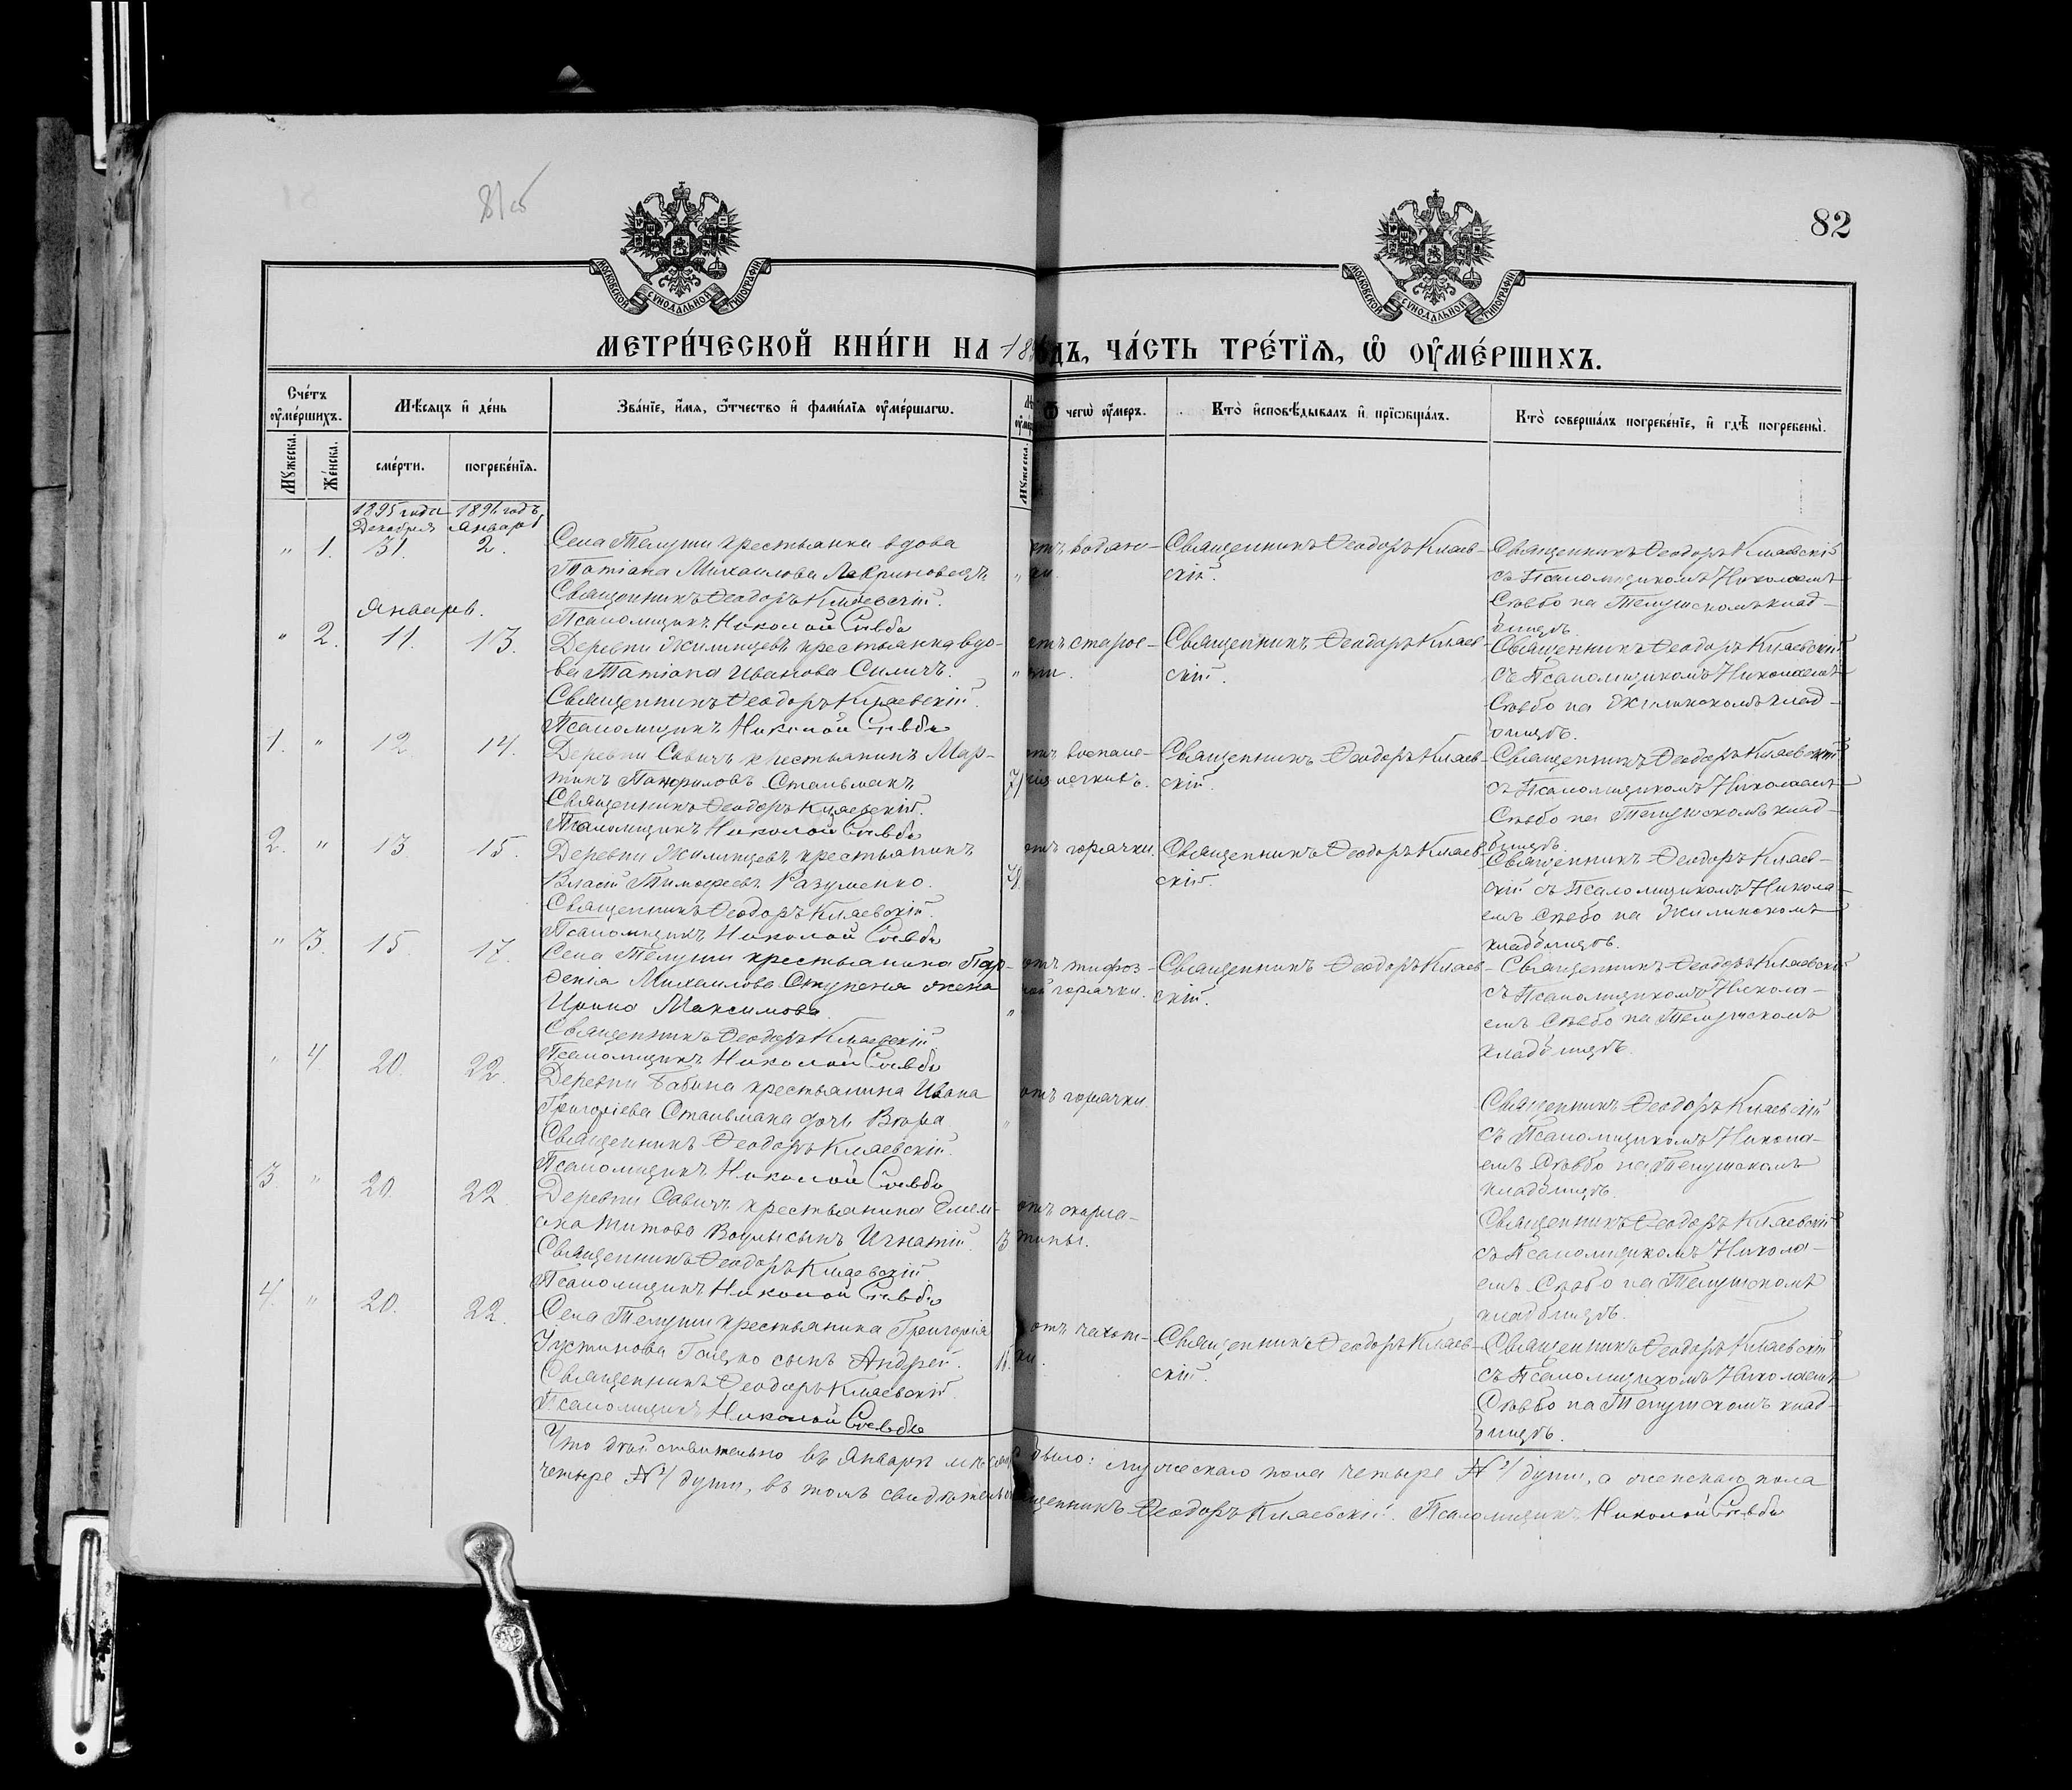 81 об
82
МОСКОВСКОЙ СѴНОДАЛЬНОЙ ТИПОГРАФІИ
МОСКОВСКОЙ СѴНОДАЛЬНОЙ ТИПОГРАФІИ
МЕТРИ́ЧЕСКОЙ КНИ́ГИ НА 189
ОДЪ, ЧА́СТЬ ТРЕ́ТІѦ, Ѿ ОУ҆МЕ́РШИХЪ.
Сче́тъ оу҆ме́ршихъ.
Мꙋ́жеска.
Же́нска.
Мѣ́сяцъ и҆ де́нь
сме́рти.
погребе́нїѧ.
Зва́нїе, и҆́мѧ, ѻ҆́тчество и҆ фамѝлїѧ оу҆ме́ршагѡ.
Мꙋ́жеска.
Ѿ чегѡ̀ оу҆́меръ.
Кто̀ и҆сповѣ́дывалъ и҆ прїѡбща́лъ.
Кто̀ соверша́лъ погребе́нїе, и҆ гдѣ̀ погребены̀.
1895 года Декабря
1896 годъ Январь
" 1. 31. 2.
Села Телуши крестьянка вдова
Татіана Михаилова
Священникъ Ѳеодоръ Кляевскій.
Псаломщикъ Николай Сѣвбо
"
отъ водян-
ки.
Священникъ Ѳеодоръ Кляев-
скій.
Священникъ Ѳеодоръ Кляевскій
съ Псаломщикомъ Николаемъ
Сѣвбо на Телушскомъ клад-
бищѣ.
Январь.
" 2. 11. 13.
Деревни Жилинцевъ крестьянка вдо-
ва Татіана Иванова Силичъ.
Священникъ Ѳеодоръ Кляевскій.
Псаломщикъ Николай Сѣвбо
"
отъ старос-
ти.
Священникъ Ѳеодоръ Кляев-
скій.
Священникъ Ѳеодоръ Кляевскій
съ Псаломщикомъ Николаемъ
Сѣвбо на Жилинскомъ клад-
бищѣ.
1. " 12 14.
Деревни Савичъ крестьянинъ Мар-
тинъ Панфиловъ Стальмахъ
Священникъ Ѳеодоръ Кляевскій.
Псаломщикъ Николай Сѣвбо
71
отъ воспале-
нія легкихъ.
Священникъ Ѳеодоръ Кляев-
скій.
Священникъ Ѳеодоръ Кляевскій
съ Псаломщикомъ Николаемъ
Сѣвбо на Телушскомъ клад-
бищѣ.
2. " 13 15.
Деревни Жилинцевъ крестьянинъ
Власій Тимофеевъ Разуменко.
Священникъ Ѳеодоръ Кляевскій.
Псаломщикъ Николай Сѣвбо
отъ горячки.
Священникъ Ѳеодоръ Кляев-
скій.
Священникъ Ѳеодоръ Кляев-
скій съ Псаломщикомъ Никола-
емъ Сѣвбо на Жилинскомъ
кладбищѣ.
" 3. 15 17.
Села Телуши крестьянина Пар-
фенія Михаилова жена
Ирина Максимова
Священникъ Ѳеодоръ Кляевскій
Псаломщикъ Николай Сѣвбо
"
отъ тифоз-
ной горячки.
Священникъ Ѳеодоръ Кляев-
скій.
Священникъ Ѳеодоръ Кляевскій
съ Псаломщикомъ Никола-
емъ Сѣвбо на Телушскомъ
кладбищѣ.
" 4 20. 22.
Деревни Бабина крестьянина Ивана
Григоріева Стальмаха дочь Вѣра
Священникъ Ѳеодоръ Кляевскій.
Псаломщикъ Николай Сѣвбо
"
отъ горячки.
Священникъ Ѳеодоръ Кляевскій
съ Псаломщикомъ Никола-
емъ Сѣвбо на Телушскомъ
кладбищѣ.
3. " 20. 22.
Деревни Савичъ крестьянина
Титова сынъ Игнатій.
Священникъ Ѳеодоръ Кляевскій
Псаломщикъ Николай Сѣвбо
3
отъ скарла-
тины.
Священникъ Ѳеодоръ Кляевскій
съ Псаломщикомъ Никола-
емъ Сѣвбо на Телушскомъ
кладбищѣ.
4. " 20. 22.
Села Телуши крестьянина Григорія
Іустинова сынъ Андрей.
Священникъ Ѳеодоръ Кляевскій.
Псаломщикъ Николай Сѣвбо
отъ чахот-
ки.
Священникъ Ѳеодоръ Кляев-
скій.
Священникъ Ѳеодоръ Кляевскій
съ Псаломщикомъ Николаемъ
Сѣвбо на Телушскомъ клад-
бищѣ.
Что дѣйствительно въ Январѣ мѣсяцѣ было: мужескаго пола четыре №4 души, а женскаго пола
четыре №4 души, въ томъ свидѣтельс Священникъ Ѳеодоръ Кляевскій. Псаломщикъ Николай Сѣвбо